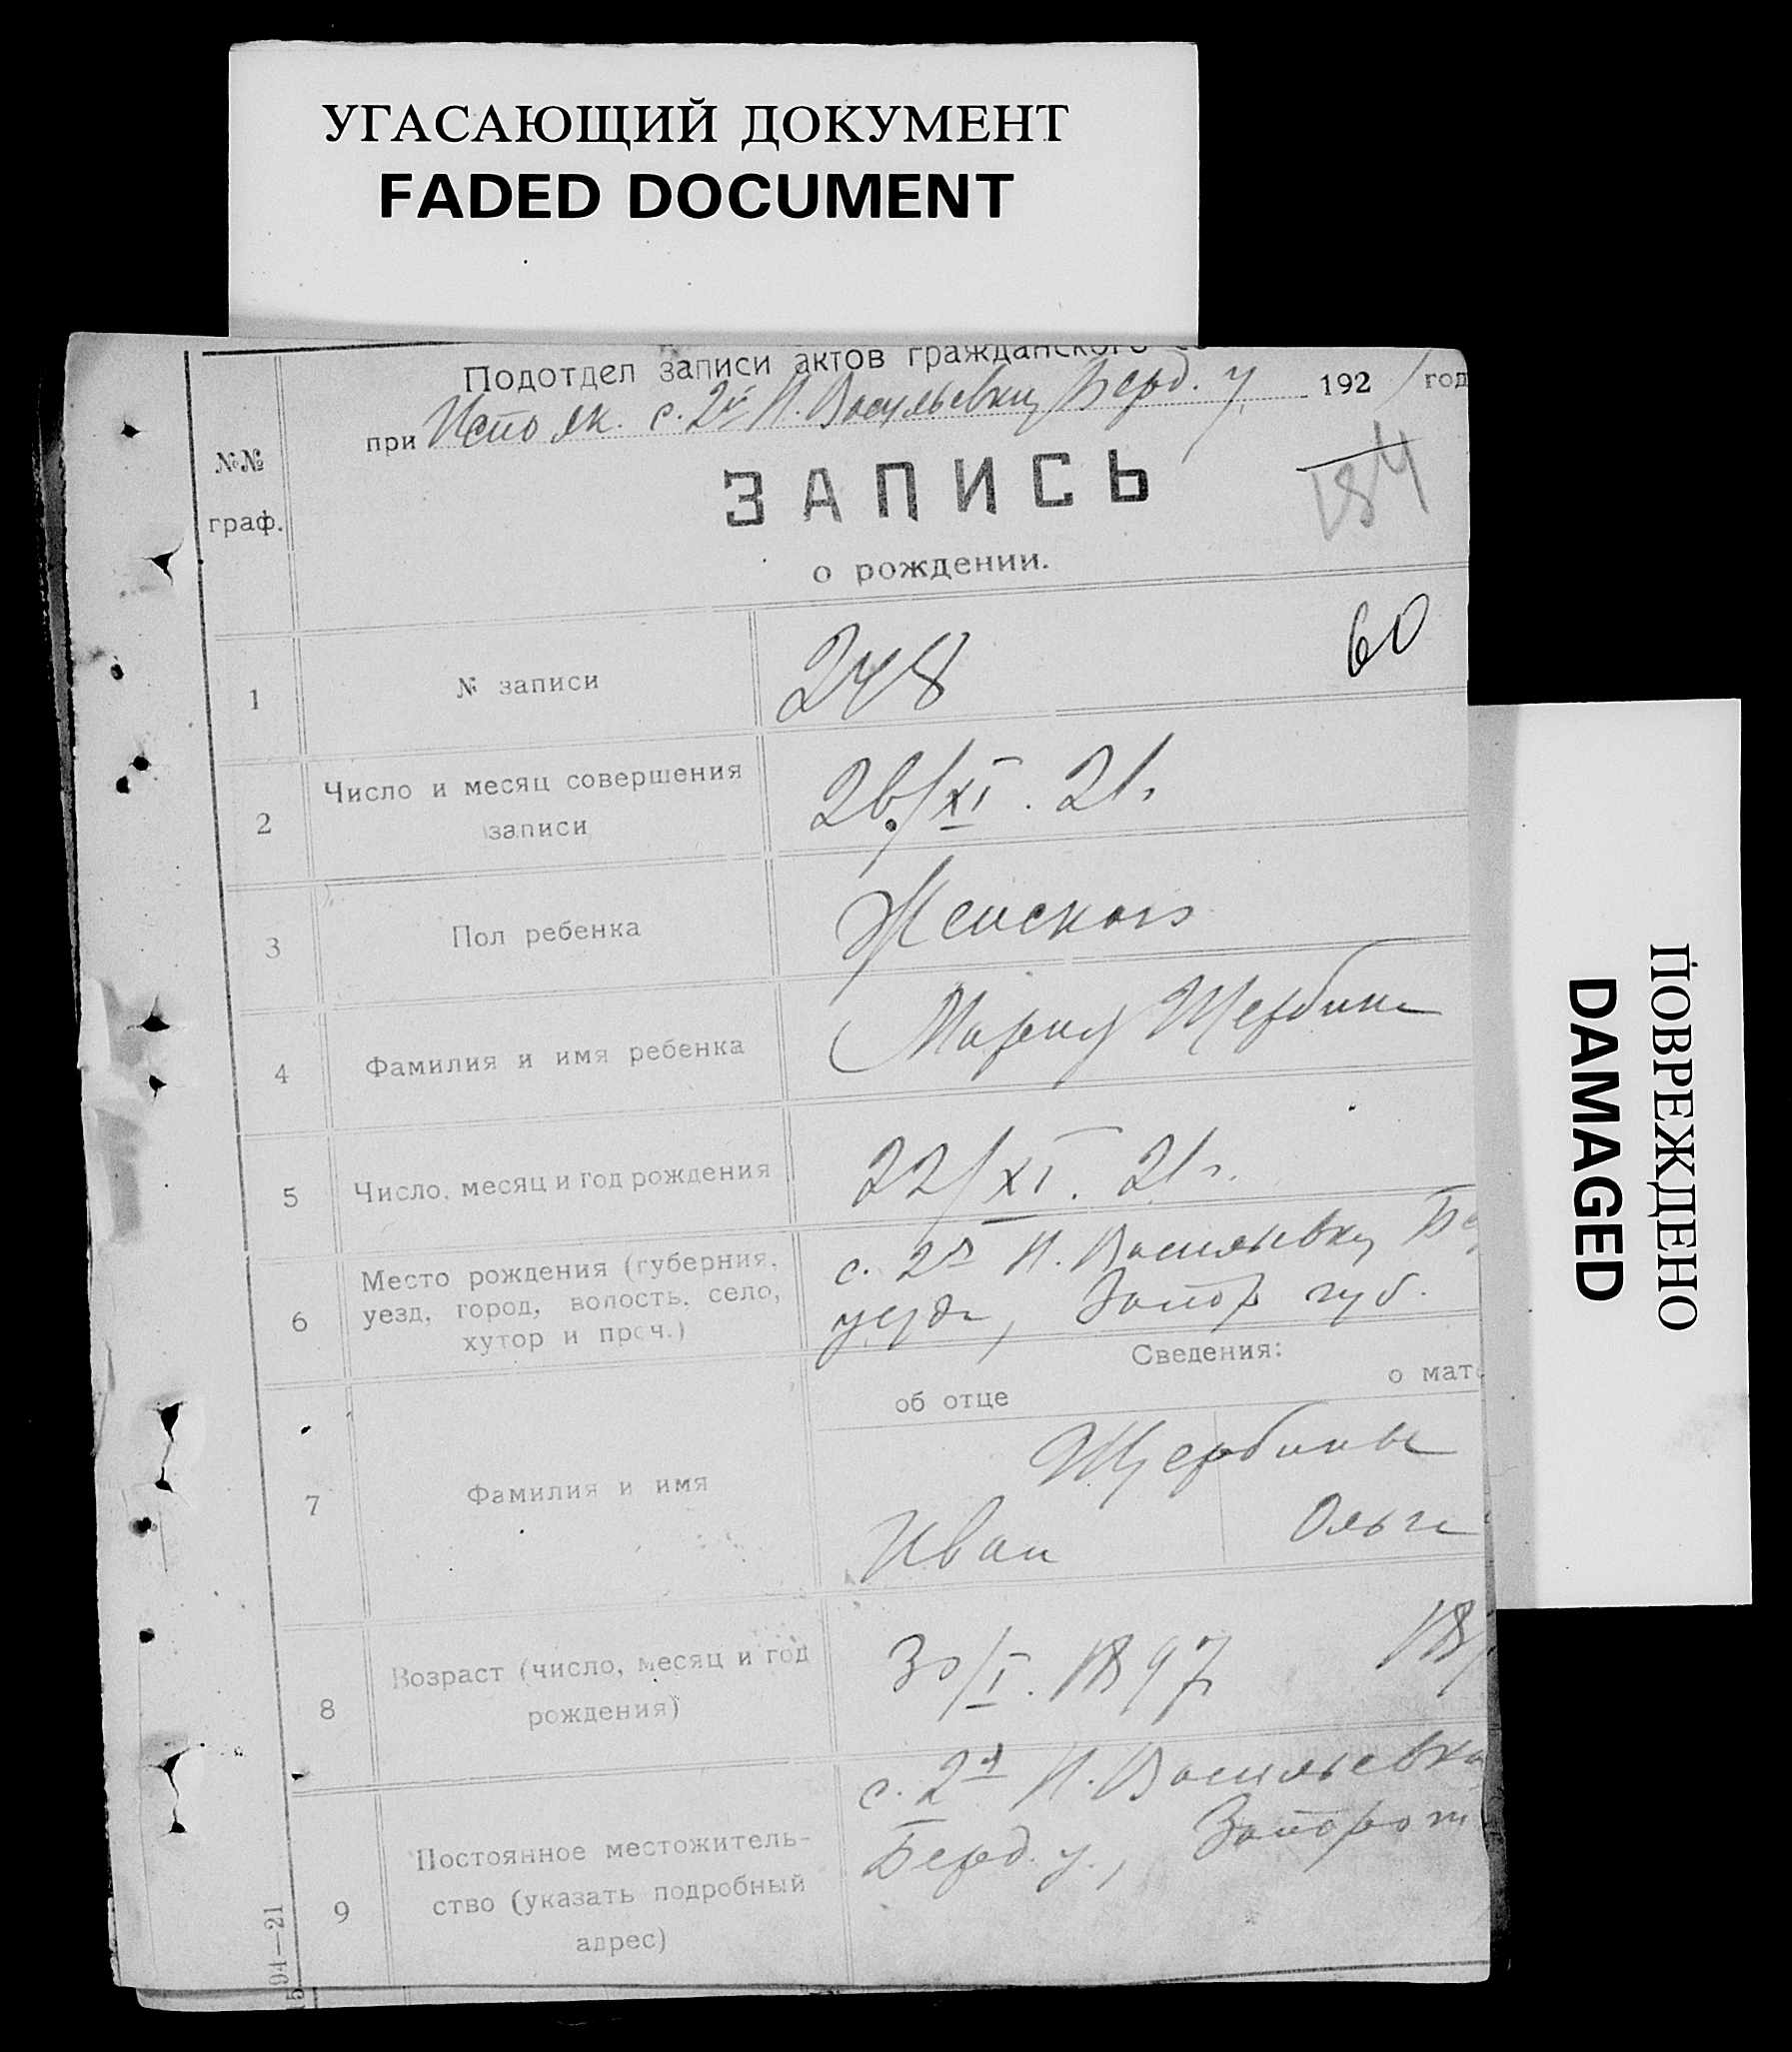 УГАСАЮЩИЙ ДОКУМЕНТ
FADED DOCUMENT
Подотдел записи актов гражданского
при с. 2я Н. Васильевка Берд. у. 192 1 год
№№ граф.
184
ЗАПИСЬ
о рождении.
60
1 № записи 248
2 Число и месяц совершения записи 26/XI. 21г.
3 Пол ребенка Женского
4 Фамилия и имя ребенка Мария Щербина
5 Число, месяц и год рождения 22/XI. 21г.
6 Место рождения (губерния, уезд, город, волость, село, хутор и проч.)
с. 2я Н. Васильевка Бе
уезда, Запор губ.
Сведения:
об отце о мат
7 Фамилия и имя
Щербины
Иван Ольга
8 Возраст (число, месяц и год рождения) 30/I. 1897 18
9 Постоянное местожитель-
ство (указать подробный
адрес)
с. 2я Н. Васильевка
Берд. у., Запорож
94—21
ПОВРЕЖДЕНО
DAMAGED